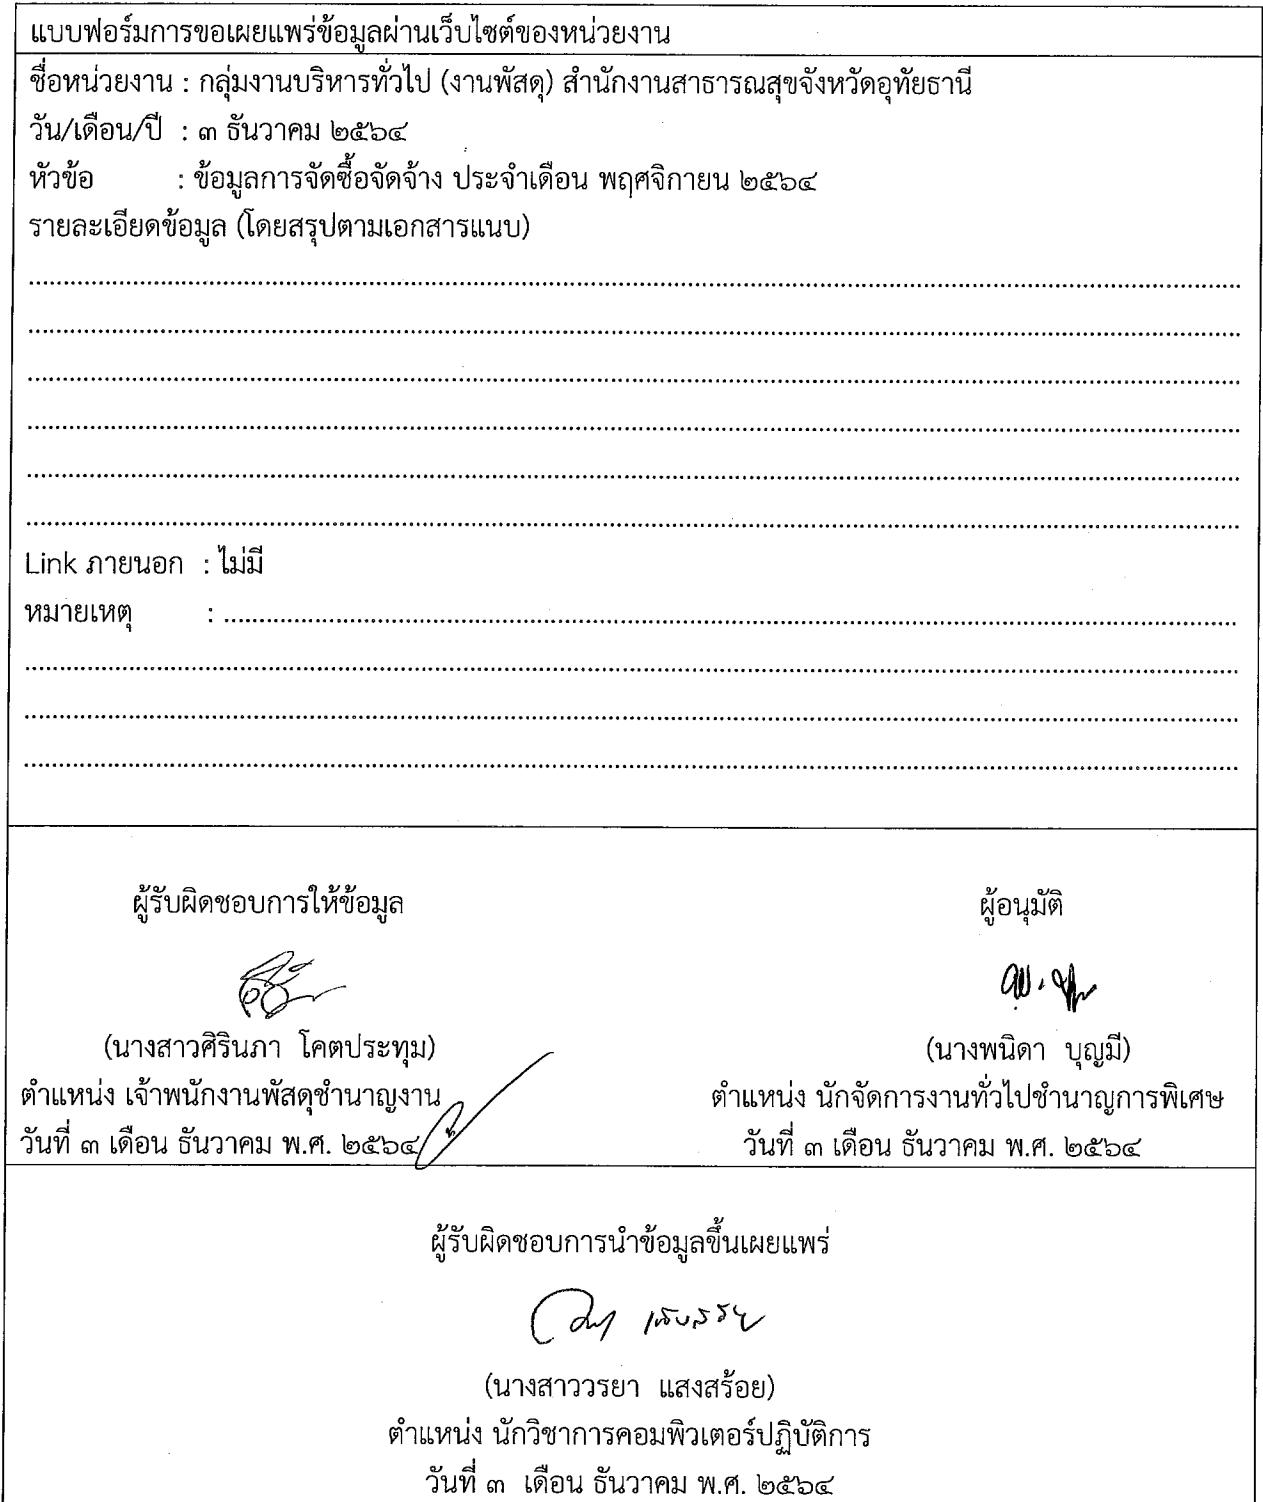 แบบฟอร์มการขอเผยแพร่ข้อมูลผ่านเว็บไซต์ของหน่วยงาน
ชื่อหน่วยงาน : กลุ่มงานบริหารทั่วไป (งานพัสดุ) สำนักงานสาธารณสุขจังหวัดอุทัยธานี
วัน/เดือน/ปี : ๓ ธันวาคม ๒๕๖๔
หัวข้อ : ข้อมูลการจัดซื้อจัดจ้าง ประจำเดือน พฤศจิกายน ๒๕๖๔
รายละเอียดข้อมูล (โดยสรุปตามเอกสารแนบ)
Link ภายนอก : ไม่มี
หมายเหตุ :
ผู้รับผิดชอบการให้ข้อมูล
ผู้อนุมัติ
(นางสาวศิรินภา โคตประทุม)
(นางพนิดา บุญมี)
ตำแหน่ง เจ้าพนักงานพัสดุชำนาญงาน
ตำแหน่ง นักจัดการงานทั่วไปชำนาญการพิเศษ
วันที่ ๓ เดือน ธันวาคม พ.ศ. ๒๕๖๔
วันที่ ๓ เดือน ธันวาคม พ.ศ. ๒๕๖๔
ผู้รับผิดชอบการนำข้อมูลขึ้นเผยแพร่
(นางสาววรยา แสงสร้อย)
ตำแหน่ง นักวิชาการคอมพิวเตอร์ปฏิบัติการ
วันที่ ๓ เดือน ธันวาคม พ.ศ. ๒๕๖๔